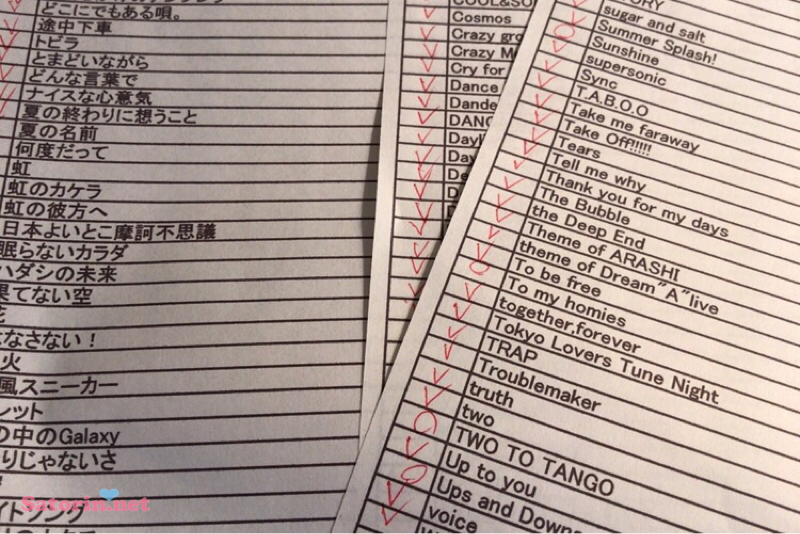 どこにでもある唄。
途中下車
トビラ
とまどいながら
どんな言葉で
ナイスな心意気
夏の終わりに想うこと
夏の名前
何度だって
虹
虹のカケラ
虹の彼方へ
日本よいとこ摩訶不思議
眠らないカラダ
ハダシの未来
果てない空
なさない！
火
風スニーカー
レット
の中のGalaxy
りじゃないさ
Satorin.net
COOL&SO
Cosmos
Crazy gro
Crazy M
Cry for
Dance
Dande
DANG
Dayli
Day
De
D
sugar and salt
Summer Splash!
Sunshine
supersonic
Sync
T.A.B.O.O
Take me faraway
Take Off!!!!!
Tears
Tell me why
Thank you for my days
The Bubble
the Deep End
Theme of ARASHI
theme of Dream"A"live
To be free
To my homies
together,forever
Tokyo Lovers Tune Night
TRAP
Troublemaker
truth
two
TWO TO TANGO
Up to you
Ups and Downs
voice